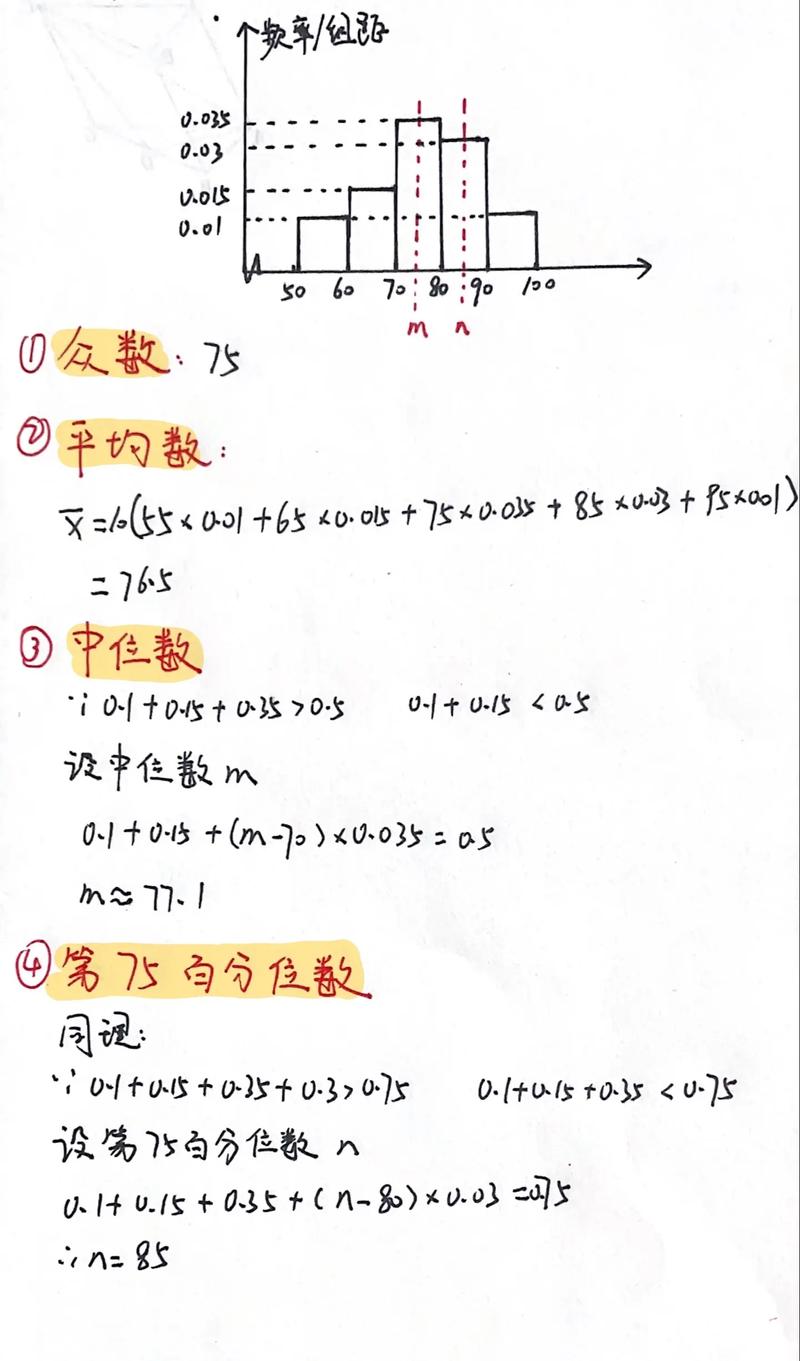 频率/组距
0.035
0.03
0.015
0.01
50 60 70 80 90 100
m n
① 众数: 75
② 平均数:
x̄=10(55×0.01+65×0.015+75×0.035+85×0.03+95×0.01)
=76.5
③ 中位数
∵ 0.1+0.15+0.35>0.5 0.1+0.15<0.5
设中位数m
0.1+0.15+(m-70)×0.035=0.5
m≈77.1
④ 第75百分位数
同理:
∵ 0.1+0.15+0.35+0.3>0.75 0.1+0.15+0.35<0.75
设第75百分位数n
0.1+0.15+0.35+(n-80)×0.03=0.75
∴n=85